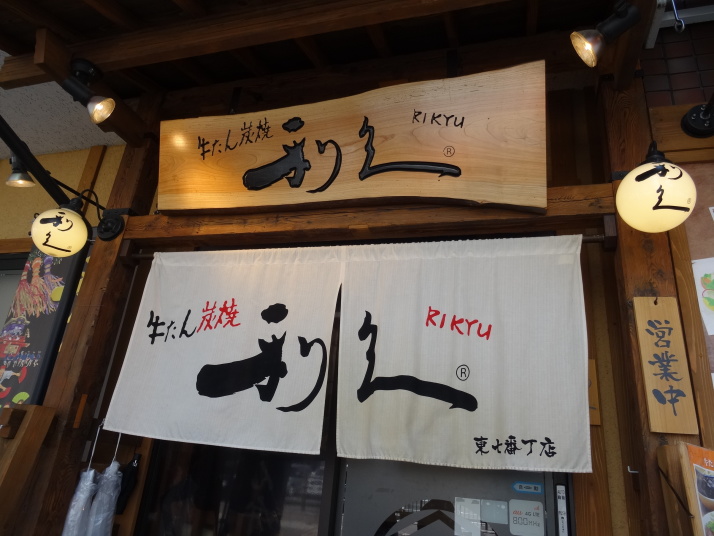 牛たん炭焼 利久 RIKYU ®
利久
利久
牛たん炭焼 利久 RIKYU ®
東七番丁店
営業中